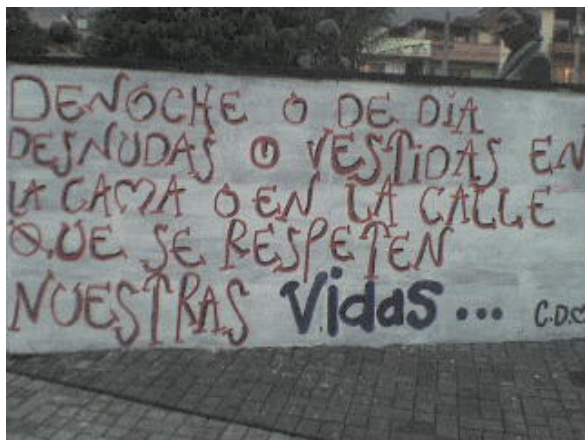 DENOCHE O DE DÍA
DESNUDAS O VESTIDAS EN
LA CAMA O EN LA CALLE
QUE SE RESPETEN
NUESTRAS Vidas... C.D.